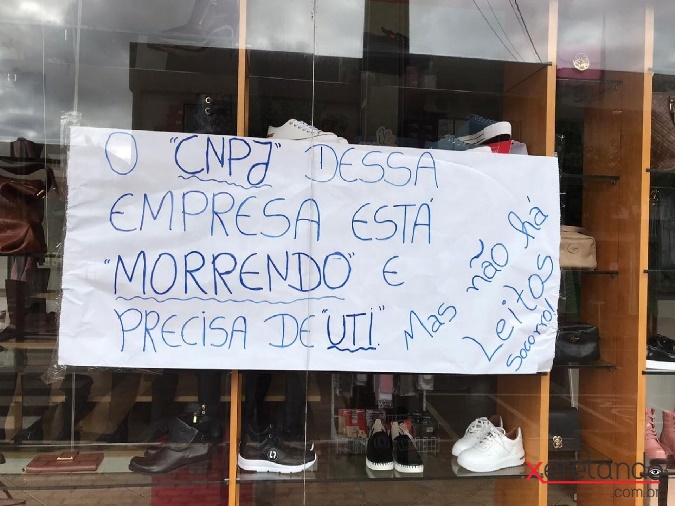 O "CNPJ" DESSA
EMPRESA ESTÁ
"MORRENDO" E
PRECISA DE "UTI."
Mas não há
Leitos
Socorro!
Xeretando
.com.br